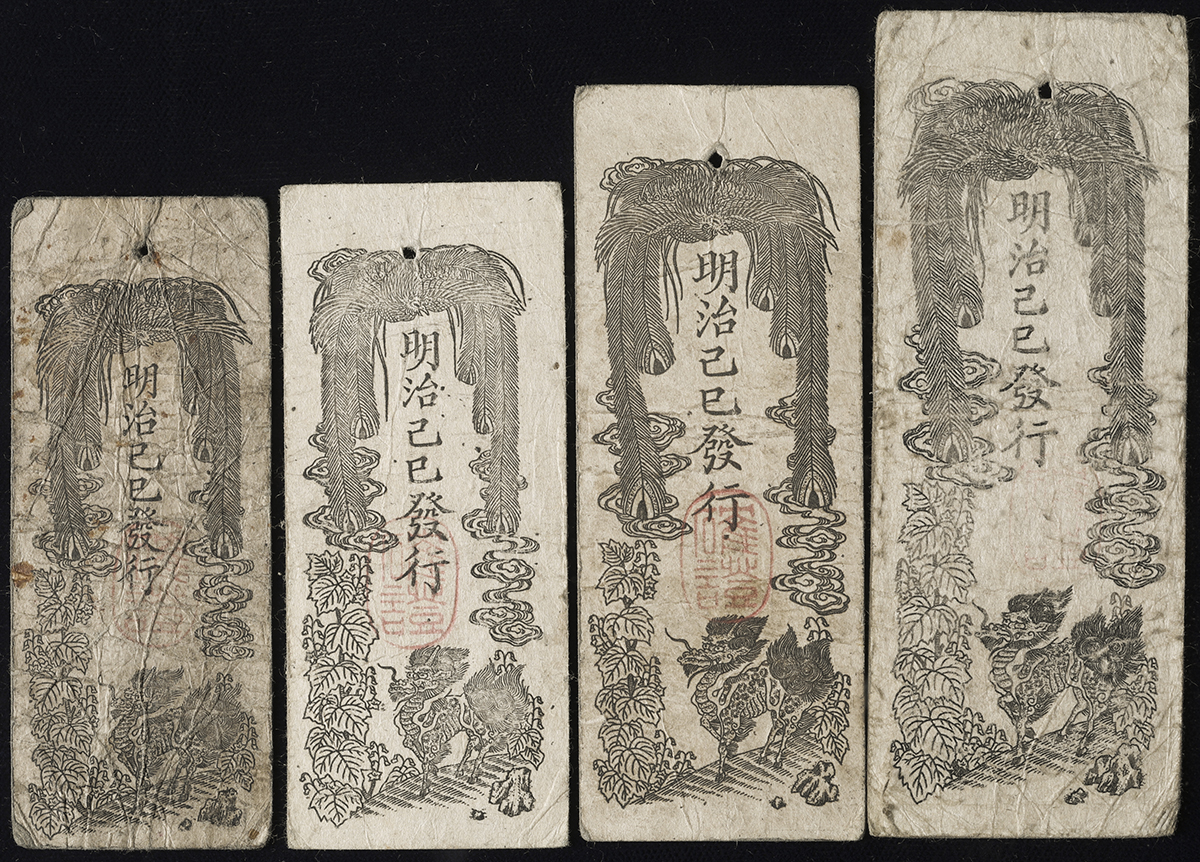 明治己巳發行
明治己巳發行
明治己巳發行
明治己巳發行